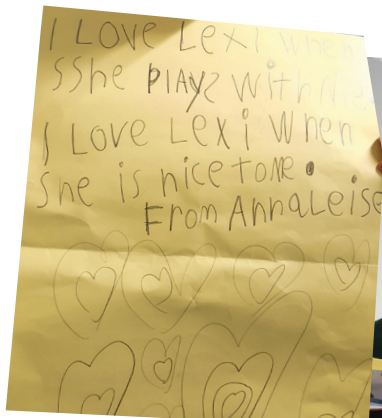 I LOVE LeXi When
SShe PlAYS WiTH Me.
I LOVE LeXi When
She is nice Tome.
From AnnaLeise